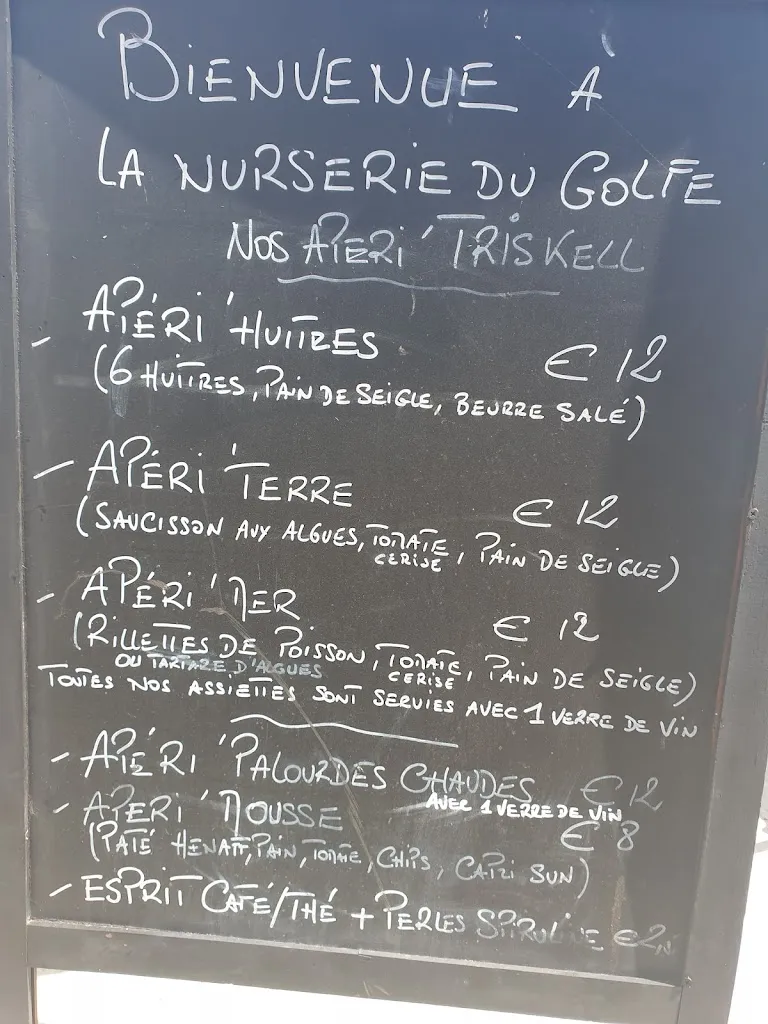 BIENVENUE À
LA NURSERIE DU GOLFE
NOS APÉRI' TRISKELL
- APÉRI' HUITRES € 12
(6 HUITRES, PAIN DE SEIGLE, BEURRE SALÉ)
- APÉRI' TERRE € 12
(SAUCISSON AUX ALGUES, TOMATE CERISE, PAIN DE SEIGLE)
- APÉRI' MER € 12
(RILLETTES DE POISSON, TOMATE CERISE, PAIN DE SEIGLE)
OU TARTARE D'ALGUES
TOUTES NOS ASSIETTES SONT SERVIES AVEC 1 VERRE DE VIN
- APÉRI' PALOURDES CHAUDES € 12
AVEC 1 VERRE DE VIN
- APERI' MOUSSE € 8
(PATÉ HENAFF, PAIN, TOMATE, CHIPS, CAPRI SUN)
- ESPRIT CAFÉ/THÉ + PERLES SPIRULINE €2